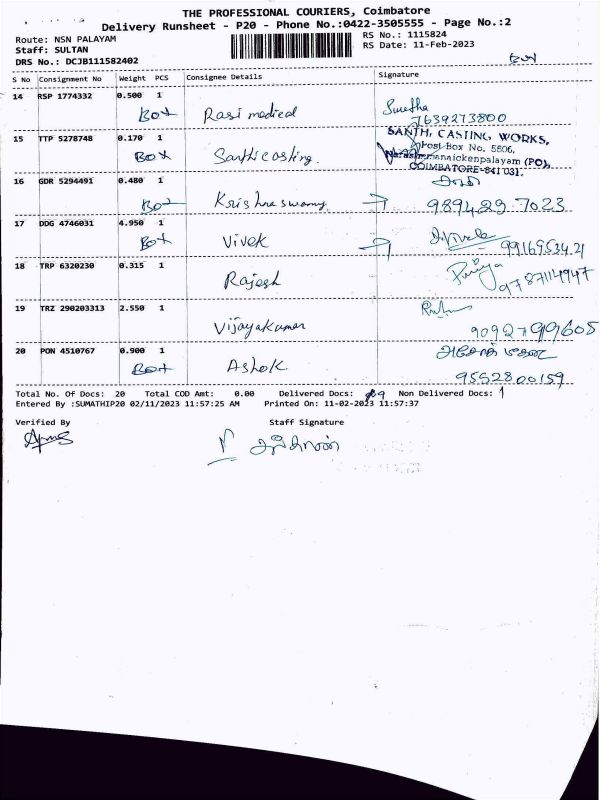 THE PROFESSIONAL COURIERS, Coimbatore
Delivery Runsheet - P20 - Phone No.:0422-3505555 - Page No.:2
Route: NSN PALAYAM
RS No.: 1115824
Staff: SULTAN
RS Date: 11-Feb-2023
DRS No.: DCJB111582402
S No Consignment No Weight PCS Consignee Details Signature
14 RSP 1774332 0.500 1
Box Rasi medical Swetha
7639273800
15 TTP 5278748 0.170 1
SANTHI CASTING WORKS,
Box Santhi casting. Post Box No. 5806,
Narasimmanaickenpalayam (PO),
COIMBATORE-641 031.
16 GDR 5294491 0.480 1
Box Krishnaswamy 989429 7023
17 DDG 4746031 4.950 1
Box Vivek D.Vivek 9916953421
18 TRP 6320230 0.315 1
Rajesh Puriya 9787114947
19 TRZ 290203313 2.550 1
Vijayakumar 9092799605
20 PON 4510767 0.900 1
Box Ashok
9552800159
Total No. Of Docs: 20 Total COD Amt: 0.00 Delivered Docs: 19 Non Delivered Docs: 1
Entered By :SUMATHIP20 02/11/2023 11:57:25 AM Printed On: 11-02-2023 11:57:37
Verified By Staff Signature